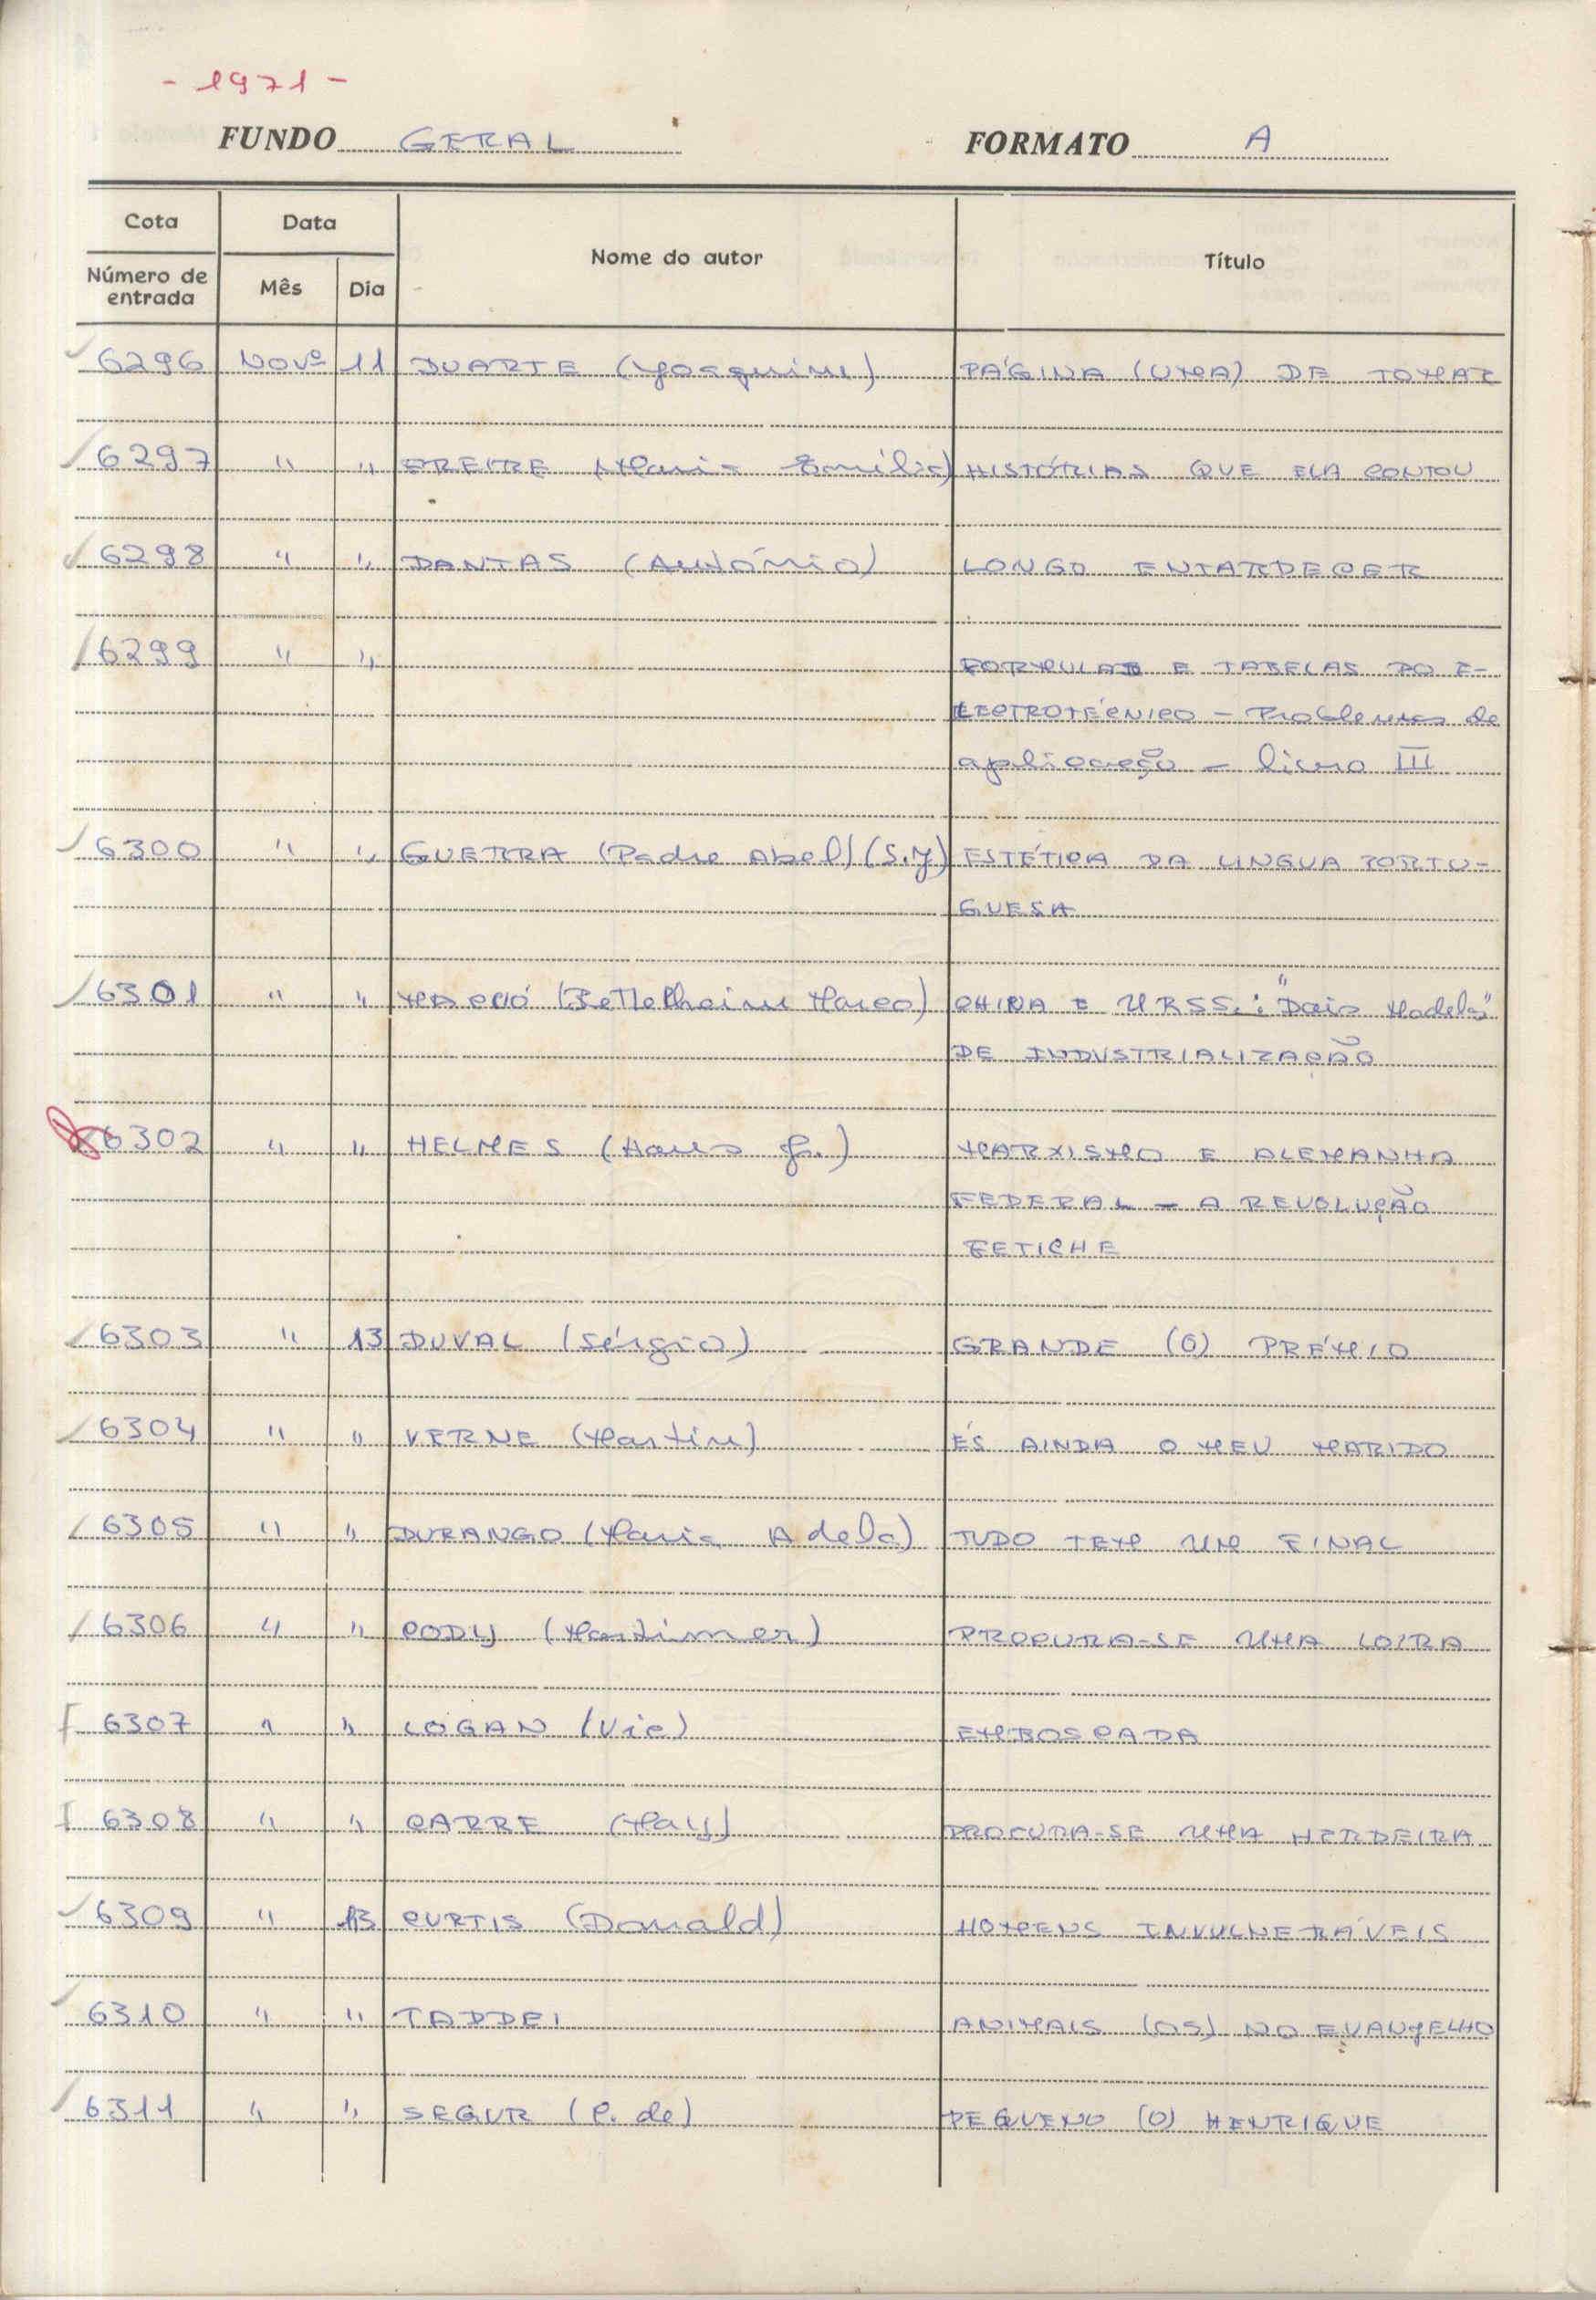 - 1971 -
FUNDO GERAL FORMATO A
Cota Data Nome do autor Título
Número de entrada Mês Dia
6296 Novº 11 DUARTE (Joaquim) PÁGINA (UMA) DE TOMAR
6297 " " FREIRE (Maria Emília) HISTÓRIAS QUE ELA CONTOU
6298 " " DANTAS (António) LONGO ENTARDECER
6299 " " FORMULAS E TABELAS DO E-
LECTROTÉCNICO - Problemas de
aplicação - livro III
6300 " " GUERRA (Padre Abel) (S.J) ESTÉTICA DA LINGUA PORTU-
GUESA
6301 " " (Bettelheim Marco) CHINA E URSS.: "Dois Modelos"
DE INDUSTRIALIZAÇÃO
6302 " " HELMES (Hans J.) MARXISMO E ALEMANHA
FEDERAL - A REVOLUÇÃO
FETICHE
6303 " 13 DUVAL (Sérgio) GRANDE (O) PRÉMIO
6304 " " VERNE (Martin) ÉS AINDA O MEU MARIDO
6305 " " DURANGO (Maria Adela) TUDO TEM UM FINAL
6306 " " CODY (Mortimer) PROCURA-SE UMA LOIRA
6307 " " LOGAN (Vic) EMBOSCADA
6308 " " CARRE (May) PROCURA-SE UMA HERDEIRA
6309 " 13 CURTIS (Donald) HOMENS INVULNERÁVEIS
6310 " " TADDEI ANIMAIS (OS) NO EVANJELHO
6311 " " SEGUR (C. de) PEQUENO (O) HENRIQUE